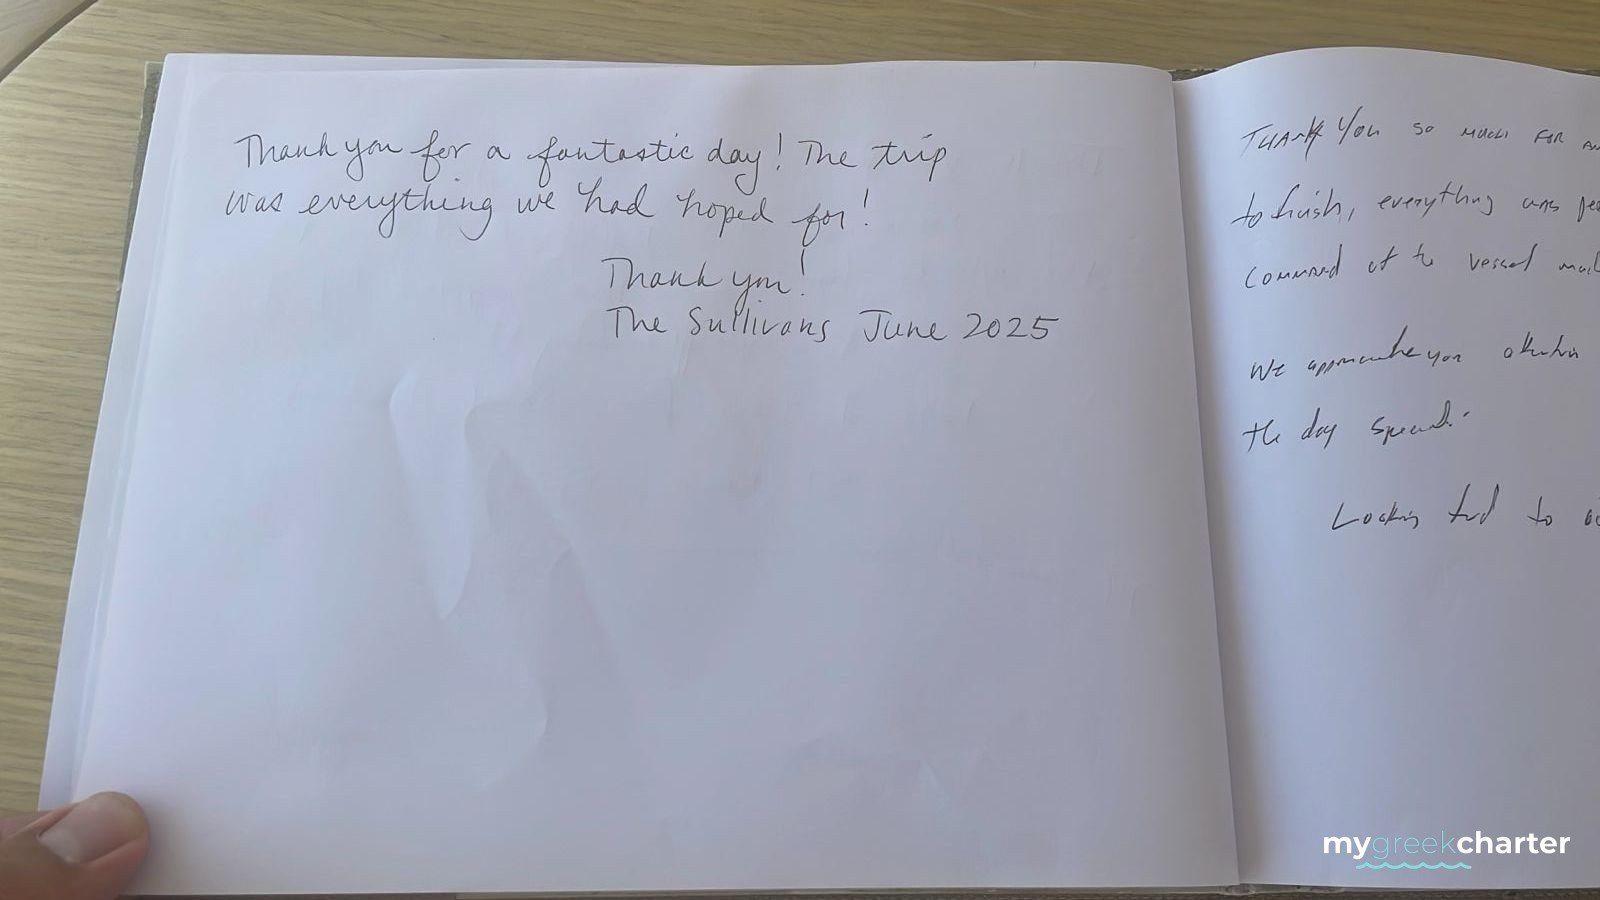 Thank you for a fantastic day! The trip
was everything we had hoped for!
Thank you!
The Sullivans June 2025
THANK YOU SO MUCH FOR
to finish, everything was
command of the vessel
We appreciate your attention
the day special.
Looking fwd to
mygreekcharter